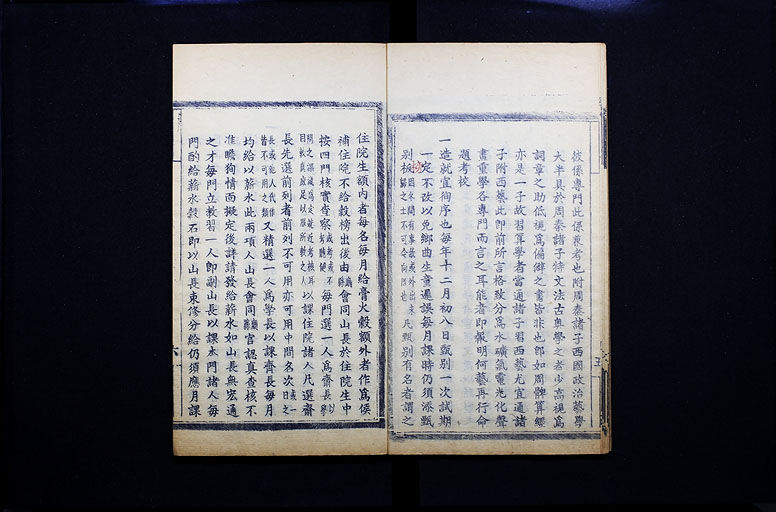 彼係專門此係兼考也附周秦諸子西國政治藝學
大半具於周秦諸子特文法古奥學之者少高視爲
詞章之助低視爲偏僻之書皆非也即如周髀算經
亦是一子故習算學者當通諸子習西藝尤宜通諸
子附西藝此即前所言格致分爲水礦氣電光化聲
畫重學各專門而言之耳能者即報明何藝再行命
題考校
一造就宜徇序也每年十二月初八日甄别一次試期
一定不改以免鄉曲生童遲誤每月課時仍須添甄
别板因冬間有事故或外出未歸之士不可令向隅也凡甄别有名者謂之
住院生額内者每名每月給膏火穀額外者作爲候
補住院不給穀榜出後由廳縣會同山長於住院生中
按四門核實查察每門選一人爲齋長
以課住院諸人凡選齋
長先選前列者前列不可用亦可用中間名次
又精選一人爲學長以課齋長每月
均給以薪水此兩項人山長會同廳縣官認真查核不
准瞻狥情面擬定後詳請發給薪水如山長無宏通
之才每門立教習一人即副山長以課本門諸人每
門酌給薪水穀石即以山長束脩分給仍須應月課
六